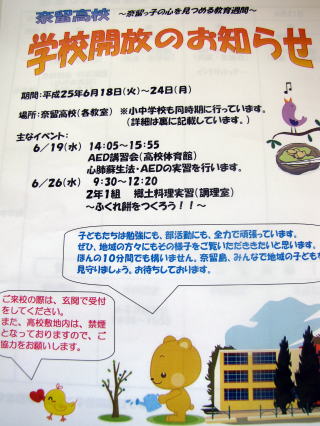 奈留高校 ~奈留っ子の心を見つめる教育週間~
学校開放のお知らせ
期間:平成25年6月18日(火)~24日(月)
場所:奈留高校(各教室) ※小中学校も同時期に行っています。
(詳細は裏に記載しています。)
主なイベント:
6/19(水) 14:05~15:55
AED講習会(高校体育館)
心肺蘇生法・AEDの実習を行います。
6/26(水) 9:30~12:20
2年1組 郷土料理実習(調理室)
~ふくれ餅をつくろう!!~
子どもたちは勉強にも、部活動にも、全力で頑張っています。
ぜひ、地域の方々にもその様子をご覧いただきたいと思います。
ほんの10分間でも構いません。奈留島、みんなで地域の子どもを
見守りましょう。お待ちしております。
ご来校の際は、玄関で受付
をしてください。
また、高校敷地内は、禁煙
となっておりますので、ご
協力をお願いします。